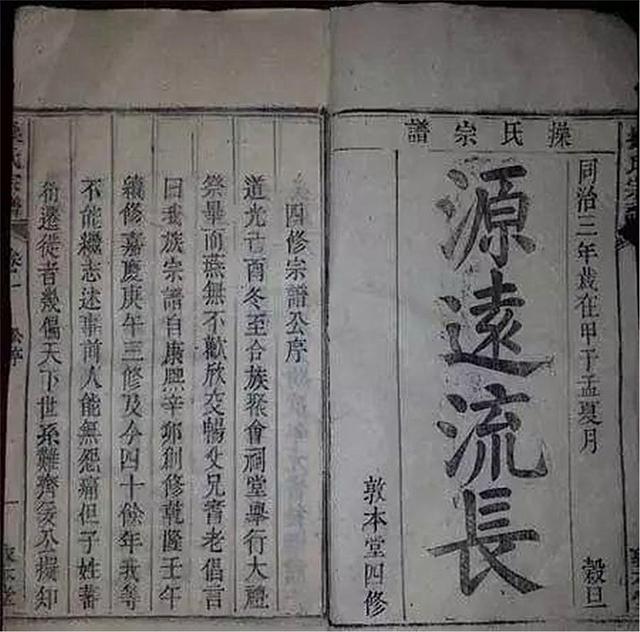 操氏宗譜
同治三年歲在甲子孟夏月 穀旦
源遠流長
敦本堂四修
四修宗譜公序
道光己酉冬至合族聚會祠堂舉行大禮
祭畢而燕無不歡欣交暢父兄耆老倡言
曰我族宗譜自康熙辛卯創修乾隆壬午
續修嘉慶庚午三修及今四十餘年我等
不能繼志述事前人能無怨痛但子姓蕃
衍遷徙者幾徧天下世系難齊爰公擬知
氏宗譜 卷一 公序 一